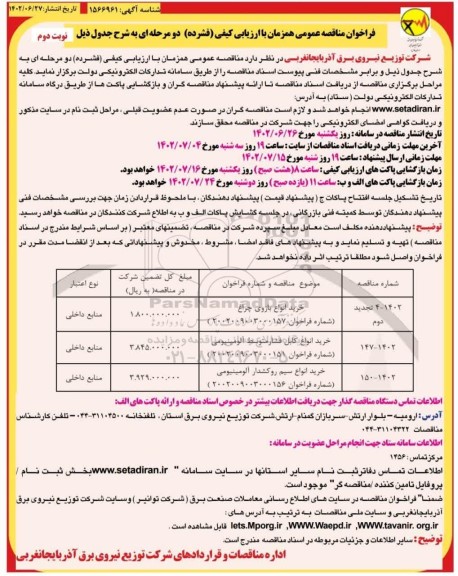 شناسه آگهی: ۱۵۶۶۹۶۱
تاریخ انتشار: ۱۴۰۲/۰۶/۲۷
فراخوان مناقصه عمومی همزمان با ارزیابی کیفی (فشرده) دو مرحله ای به شرح جدول ذیل
نوبت دوم
شرکت توزیع نیروی برق آذربایجانغربی در نظر دارد مناقصه عمومی همزمان با ارزیابی کیفی (فشرده) دو مرحله ای به
شرح جدول ذیل و برابر مشخصات فنی پیوست اسناد مناقصه را از طریق سامانه تدارکات الکترونیکی دولت برگزار نماید. کلیه
مراحل برگزاری مناقصه از دریافت اسناد مناقصه تا ارائه پیشنهاد مناقصه گران و بازگشایی پاکت ها از طریق درگاه سامانه
تدارکات الکترونیکی دولت (ستاد) به آدرس:
www.setadiran.ir انجام خواهد شد و لازم است مناقصه گران در صورت عدم عضویت قبلی، مراحل ثبت نام در سایت مذکور
و دریافت گواهی امضای الکترونیکی را جهت شرکت در مناقصه محقق سازند
تاریخ انتشار مناقصه در سامانه: روز یکشنبه مورخ ۱۴۰۲/۰۶/۲۶
آخرین مهلت زمانی دریافت اسناد مناقصات از سایت: ساعت ۱۹ روز سه شنبه مورخ ۱۴۰۲/۰۷/۰۴
مهلت زمانی ارسال پیشنهاد: ساعت ۱۹ روز شنبه مورخ ۱۴۰۲/۰۷/۱۵
زمان بازگشایی پاکت های ارزیابی کیفی: ساعت ۸ (هشت صبح) روز یکشنبه مورخ ۱۴۰۲/۰۷/۱۶ خواهد بود.
زمان بازگشایی پاکت های الف و ب: ساعت ۱۱ (یازده صبح) روز دوشنبه مورخ ۱۴۰۲/۰۷/۲۴ خواهد بود.
تاریخ تشکیل جلسه افتتاح پاکات ج (پیشنهاد قیمت) پیشنهاد دهندگان، با ملحوظ قراردادن زمان جهت بررسی مشخصات فنی
پیشنهاد دهندگان توسط کمیته فنی بازرگانی، در جلسه گشایش پاکات الف و ب به اطلاع شرکت کنندگان در مناقصه خواهد رسید.
توضیح: پیشنهاددهنده مکلف است معادل مبلغ سپرده شرکت در مناقصه، تضمینهای معتبر (بر اساس شرایط مندرج در اسناد
مناقصه) تهیه و تسلیم نماید و به پیشنهاد های فاقد امضا، مشروط، مخدوش و پیشنهاداتی که بعد از انقضا مدت مقرر در
فراخوان واصل شود مطلقا ترتیب اثر داده نخواهد شد.
شماره مناقصه
موضوع مناقصه و شماره فراخوان
مبلغ کل تضمین شرکت در مناقصه (به ریال)
نوع اعتبار
۴-۱۴۰۲ تجدید دوم
خرید انواع بازوی چراغ
(شماره فراخوان ۲۰۰۲۰۰۹۰۰۳۰۰۰۱۵۷)
۱.۸۰۰.۰۰۰.۰۰۰
منابع داخلی
۱۴۷-۱۴۰۲
خرید انواع کابل فشار متوسط آلومینیومی
(شماره فراخوان ۲۰۰۲۰۰۹۰۰۳۰۰۰۱۵۱)
۳.۸۴۵.۰۰۰.۰۰۰
منابع داخلی
۱۵۰-۱۴۰۲
خرید انواع سیم روکشدار آلومینیومی
(شماره فراخوان ۲۰۰۲۰۰۹۰۰۳۰۰۰۱۵۶)
۳.۹۲۹.۰۰۰.۰۰۰
منابع داخلی
ParsNamadData
اطلاعات تماس دستگاه مناقصه گذار جهت دریافت اطلاعات بیشتر در خصوص اسناد مناقصه و ارائه پاکت های الف:
آدرس: ارومیه - بلوار ارتش - سربازان گمنام - ارتش شرکت توزیع نیروی برق استان، تلفنخانه ۳۱۱۰۴۵۰۰-۰۴۴ - تلفن کارشناس
مناقصات ۳۱۱۰۴۳۲۲-۰۴۴
اطلاعات سامانه ستاد جهت انجام مراحل عضویت در سامانه:
مرکز تماس: ۱۴۵۶
اطلاعات تماس دفاتر ثبت نام سایر استانها در سایت سامانه " www.setadiran.ir بخش ثبت نام /
پروفایل تامین کننده / مناقصه گر" موجود است.
ضمنا" فراخوان مناقصه در سایت های اطلاع رسانی معاملات صنعت برق (شرکت توانیر) و سایت شرکت توزیع نیروی برق
آذربایجانغربی و سایت ملی مناقصات به ترتیب به آدرس های:
WWW.tavanir.org.ir ,WWW.Waepd.ir ,Iets.Mporg.ir قابل مشاهده است.
توضیح: سایر اطلاعات و جزئیات مربوطه در اسناد مناقصه مندرج است.
اداره مناقصات و قراردادهای شرکت توزیع نیروی برق آذربایجانغربی